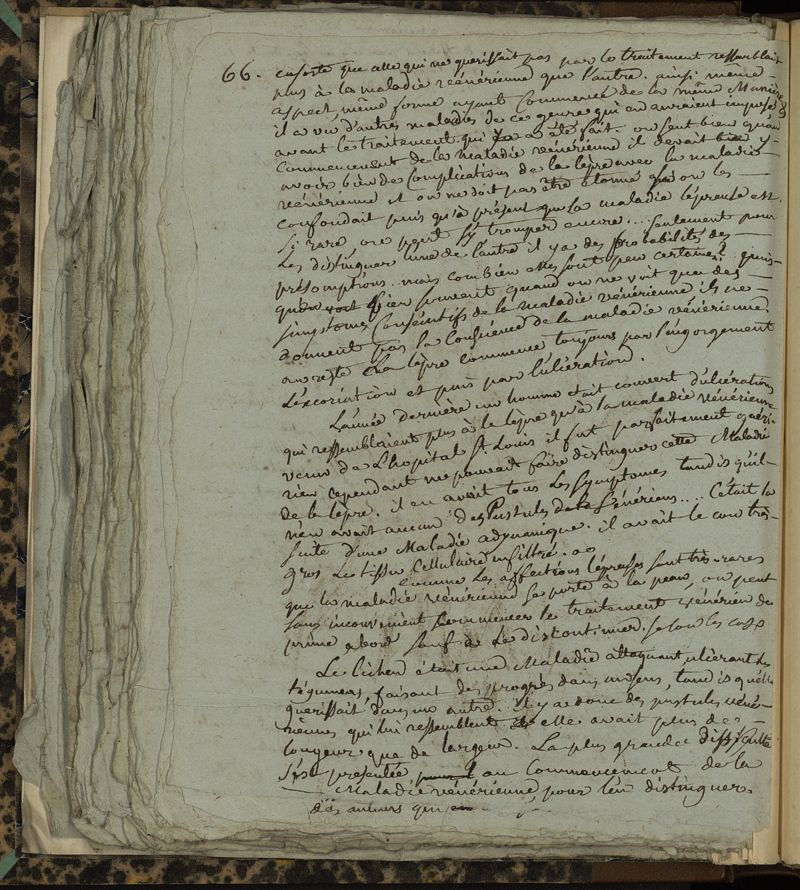 66. ensorte que celle qui ne guerissait pas par le traitement ressemblait
plus à la maladie vénérienne que l'autre. ainsi même
aspect, même forme ayant commencé de la même Manière
il a vu d'autres maladies de ce genre qui en auraient imposé
avant le traitement qui a été fait. on sent bien qu'au
Commencement de la Maladie vénérienne il devait bien y
avoir bien de Complications de la lèpre avec la maladie
vénérienne et on ne doit pas être étonné qu'on les
confondait puis qu'à présent que la maladie lépreuse est
si rare, on peut s'y tromper encore.... seulement pour
Les distinguer l'une de l'autre il y a des probabilités des
présomptions. mais combien elles sont peu certaines! puis-
que bien souvent quand on ne voit que des
simptomes Consécutifs de la Maladie vénérienne ils ne
donnent pas la Conscience de la maladie vénérienne.
au reste La lèpre commence toujours par l'engorgement
L'excoriation et puis par l'ulcération.
L'année dernière un homme était couvert d'ulcérations
qui ressemblaient plus à la lèpre qu'à la maladie vénérienne
venu de L'hopital St. Louis il fut parfaitement guéri.
rien cependant ne pouvait faire distinguer cette Maladie
de la lèpre. il en avait tous les symptomes tandis qu'il
n'en avait aucun des Pustules Vénériens.... C'était la
suite d'une Maladie adynamique. il avait le cou très-
gros Le tissu Cellulaire infiltré.
Comme Les affections lépreuses sont très-rares
que la maladie vénérienne se porte à la peau, on peut
sans inconvénient Commencer le traitement vénérien de
prime abord sauf à Le discontinuer selon les cas
Le lichen était une Maladie attaquant, ulcérant les
tégumens, faisant des progrès dans un sens, tandis qu'elle
guerissait dans un autre. il y a donc des pustules véné-
riennes qui lui ressemblent elle avait plus de
longeur que de largeur. La plus grande difficulté
s'est présentée, au Commencement de la
Maladie vénérienne, pour l'en distinguer.
des auteurs qui